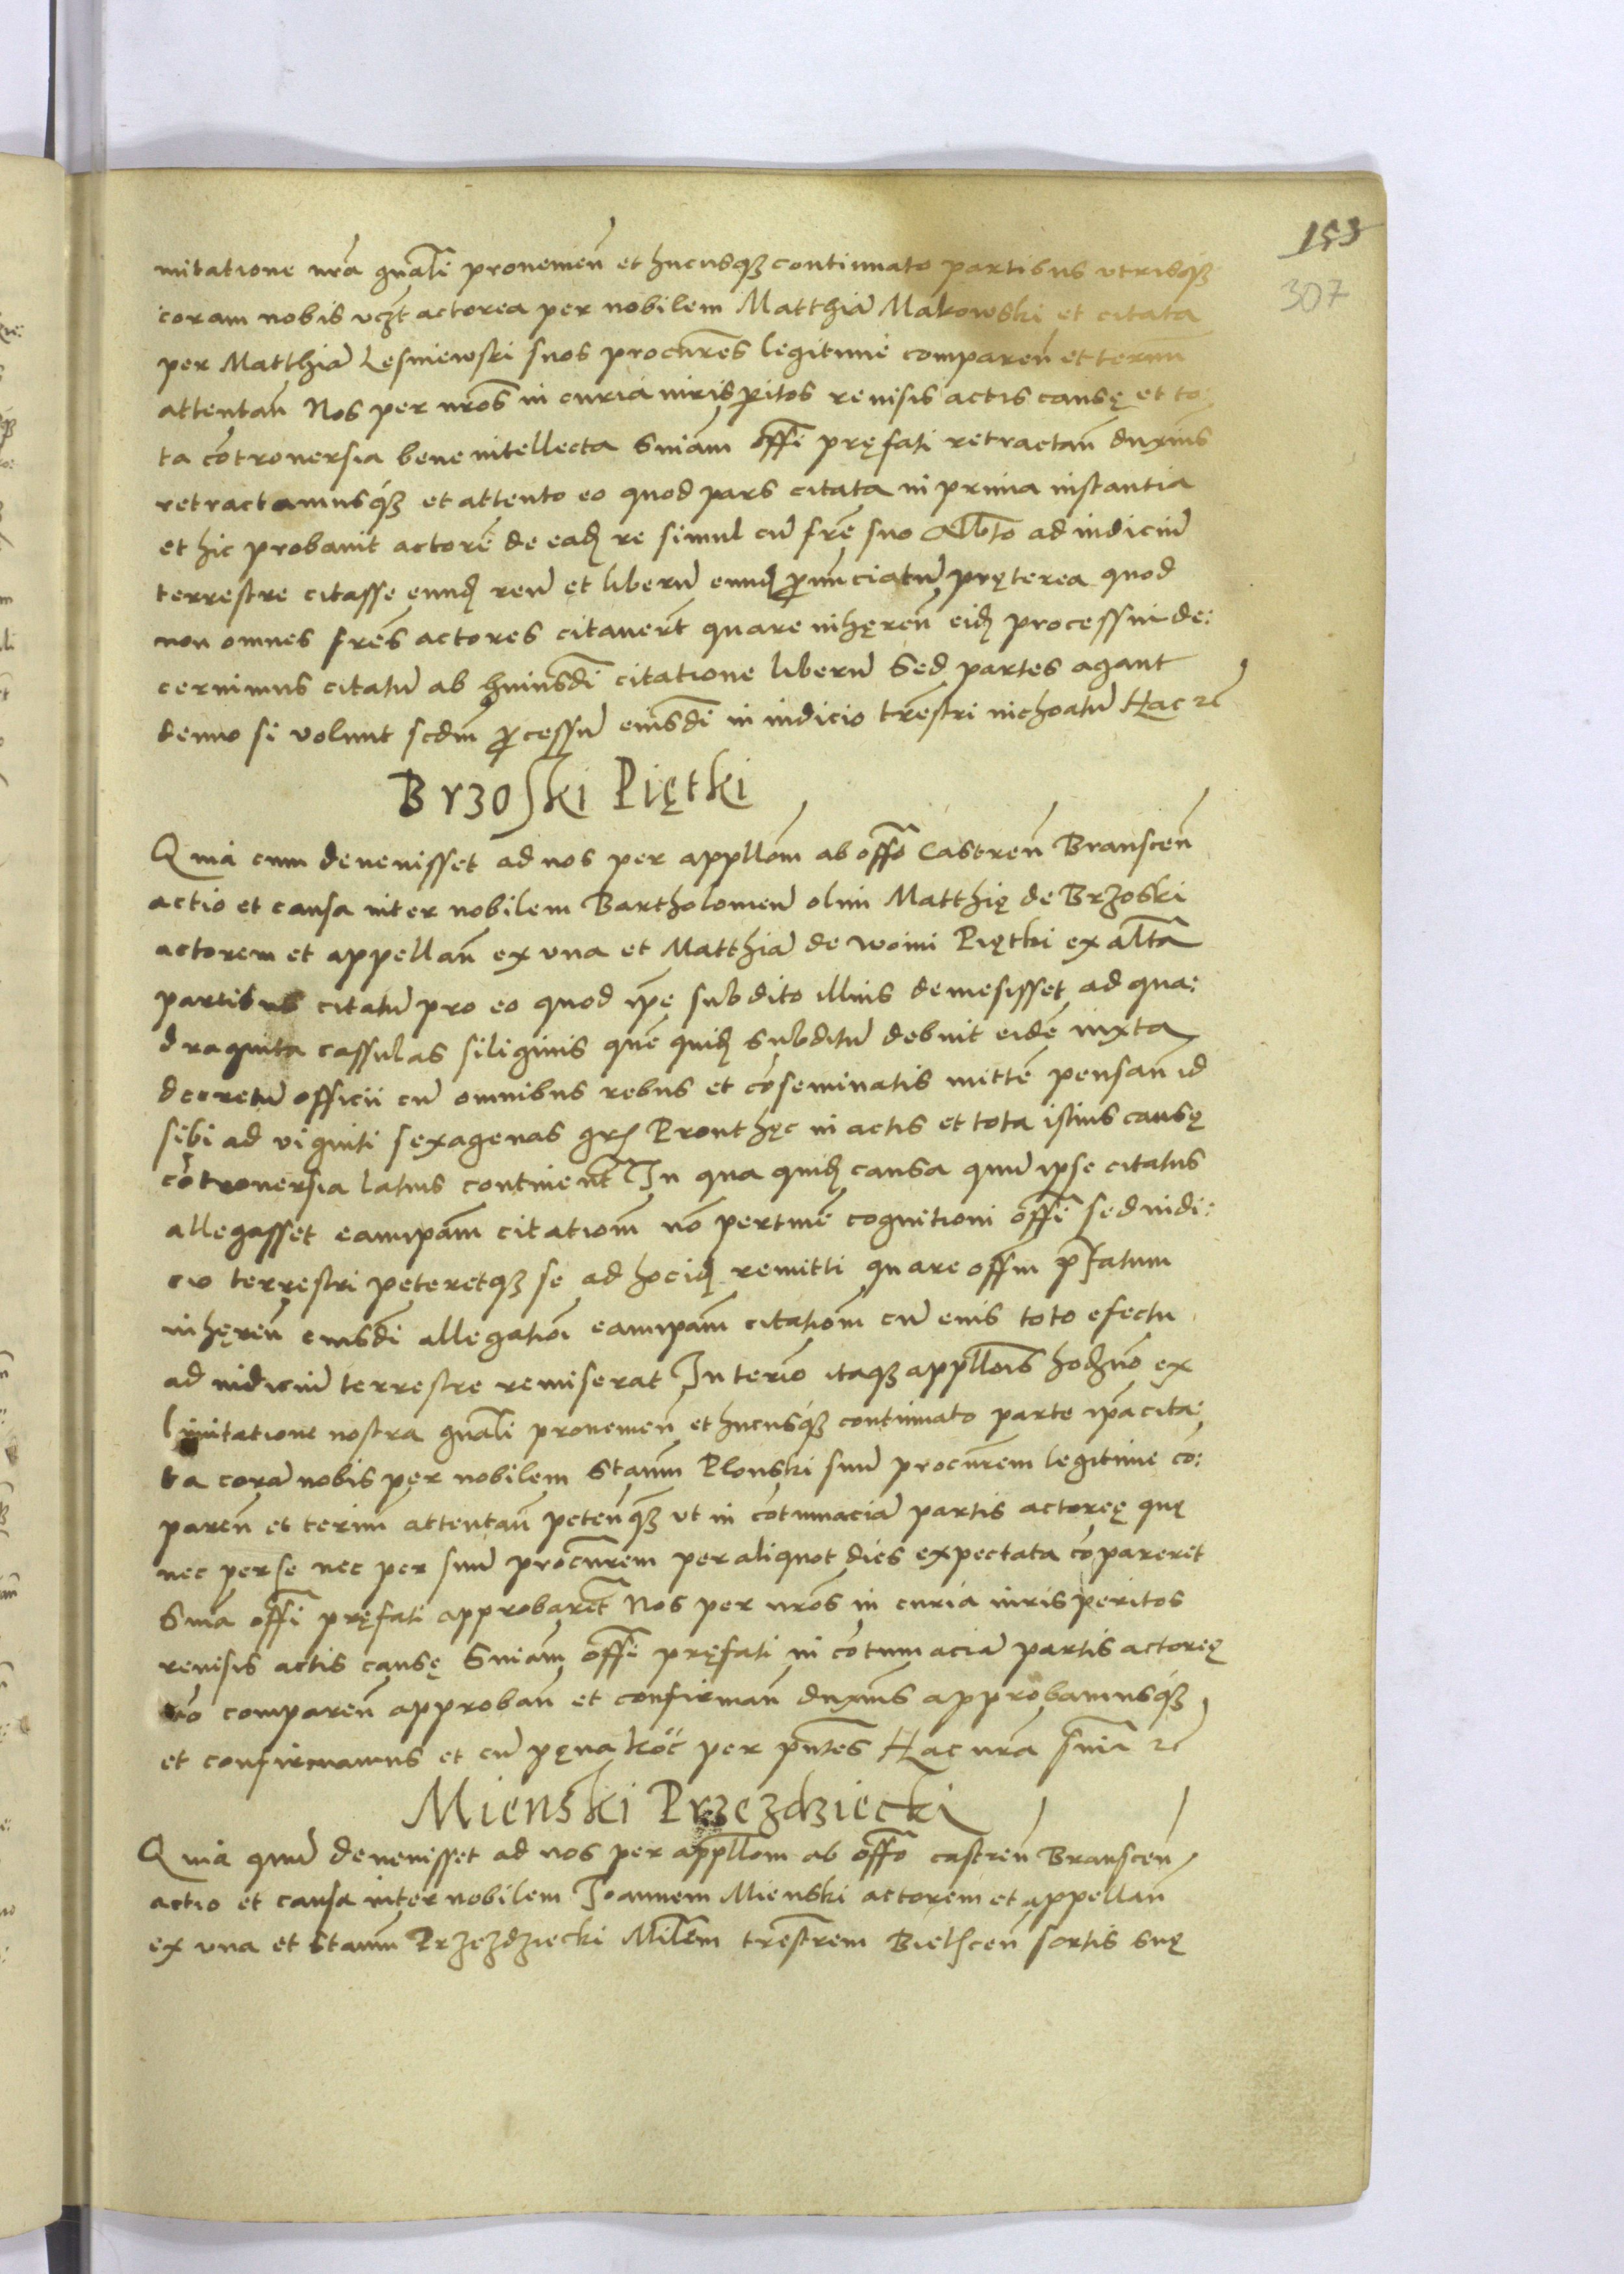 153
307
mitatione nrã gnãli provenieñ et hucusq3 continuato partibus utrisq3
coram nobis vc3t actorea per nobilem Matthiã Makowski et citata
per Matthiã Lesniewski suos procurẽs legitime compareñ et termiñ
attentañ Nos per nrõs in curia iuris peritos revisis actis causę et to
ta cõtroversia bene intellecta Sniãm offi pręfati retractañ duximus
retractamusq3 et attento eo quod pars citata in prima instantia
et hic probavit actorẽ de eadẽ re simul cũ frẽ suo Alb̃to ad iudiciũ
terrestre citasse eundẽ reũ et liberũ eundẽ pronunciatũ pręterea quod
non omnes frẽs actores citaverñt quare inhęreñ eidẽ processui de:
cernimus citatũ ab huiusdĩ citatione liberũ Sed partes agant
denuo si volunt scdm processũ eiusdĩ in iudicio trẽstri inchoatũ Hac rc
Brzoski Piętki
Quia cum devenisset ad nos per appllom ab offo Castreñ Branscen
actio et causa inter nobilem Bartholomeũ olim Matthię de Brzoski
actorem et appellañ ex una et Matthiã de woini Piętki ex altã
partibus citatũ pro eo quod ipẽ subdito illius demesisset ad qua:
draginta cassulas siliginis quẽ quidẽ subditũ debuit eidẽ iuxta
decretũ officii cũ omnibus rebus et cõseminatis mittẽ pensañ id
sibi ad viginti sexagenas gr Pront hęc in actis et tota istius causę
cõtroversia latius continent In qua quidẽ causa quũ ipse citatus
allegasset eamipãm citationẽm nõ pertinẽ cognitioni offi sed iudi:
cio terrestri peteretq3 se ad hoc idẽ remitti quare offm pfatum
inhęreñ eiusdĩ allegationi eamipãm citationẽm cũ eius toto efectu
ad iudiciũ terrestre remiserat In termĩo itaq3 appllonis hodierno ex
limitatione nostra gnãli provenieñ et hucusq3 continuato parte ipã cita:
ta corã nobis per nobilem Stanm Plonski suũ procurẽm legitime cõ:
pareñ et termiñ attentañ peteñq3 ut in cõtumaciã partis actoreę quę
nec per se nec per suũ procurẽm per aliquot dies expectata cõpareret
Snia offi pręfati approbaret Nos per nrõs in curia iuris peritos
revisis actis causę Sniãm offi pręfati in cõtumaciã partis actoreę
nõ compareñ approbañ et confirmañ duxims approbamusq3
et confirmamus et cũ pęna koc per pñtes Hac nrã snia rc
Mienski Przezdziecki
Quia quũ devenisset ad nos per appllom ab offo castreñ Branscen
actio et causa inter nobilem Joannem Mienski actorem et appellañ
ex una et Stanm Przezdziecki Militem trestrem Bielscen sortis suę